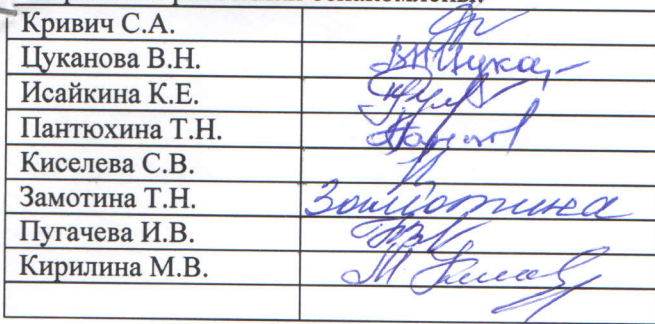 ознакомлены.
Кривич С.А.
Цуканова В.Н. ВНЦука
Исайкина К.Е.
Пантюхина Т.Н.
Киселева С.В.
Замотина Т.Н. Замотина
Пугачева И.В.
Кирилина М.В.